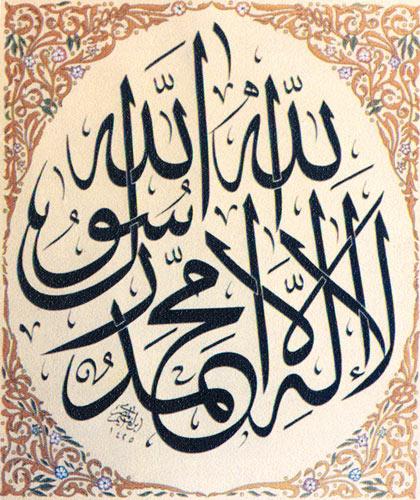 لا إله إلا الله محمد رسول الله
١٤٢٥